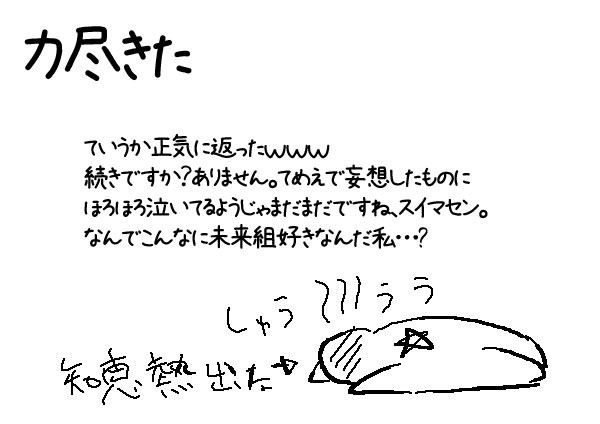 力尽きた
ていうか正気に返ったｗｗｗ
続きですか?ありません。てめえで妄想したものに
ほろほろ泣いてるようじゃまだまだですね、スイマセン。
なんでこんなに未来組好きなんだ私…?
しゅうぅぅ
知恵熱出た